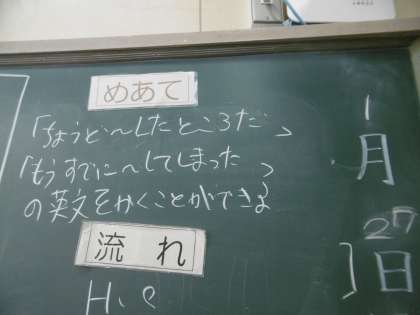 めあて
「ちょうど〜したところだ」
「もうすでに〜してしまった」
の英文をかくことができる
流れ
1
月
27
日